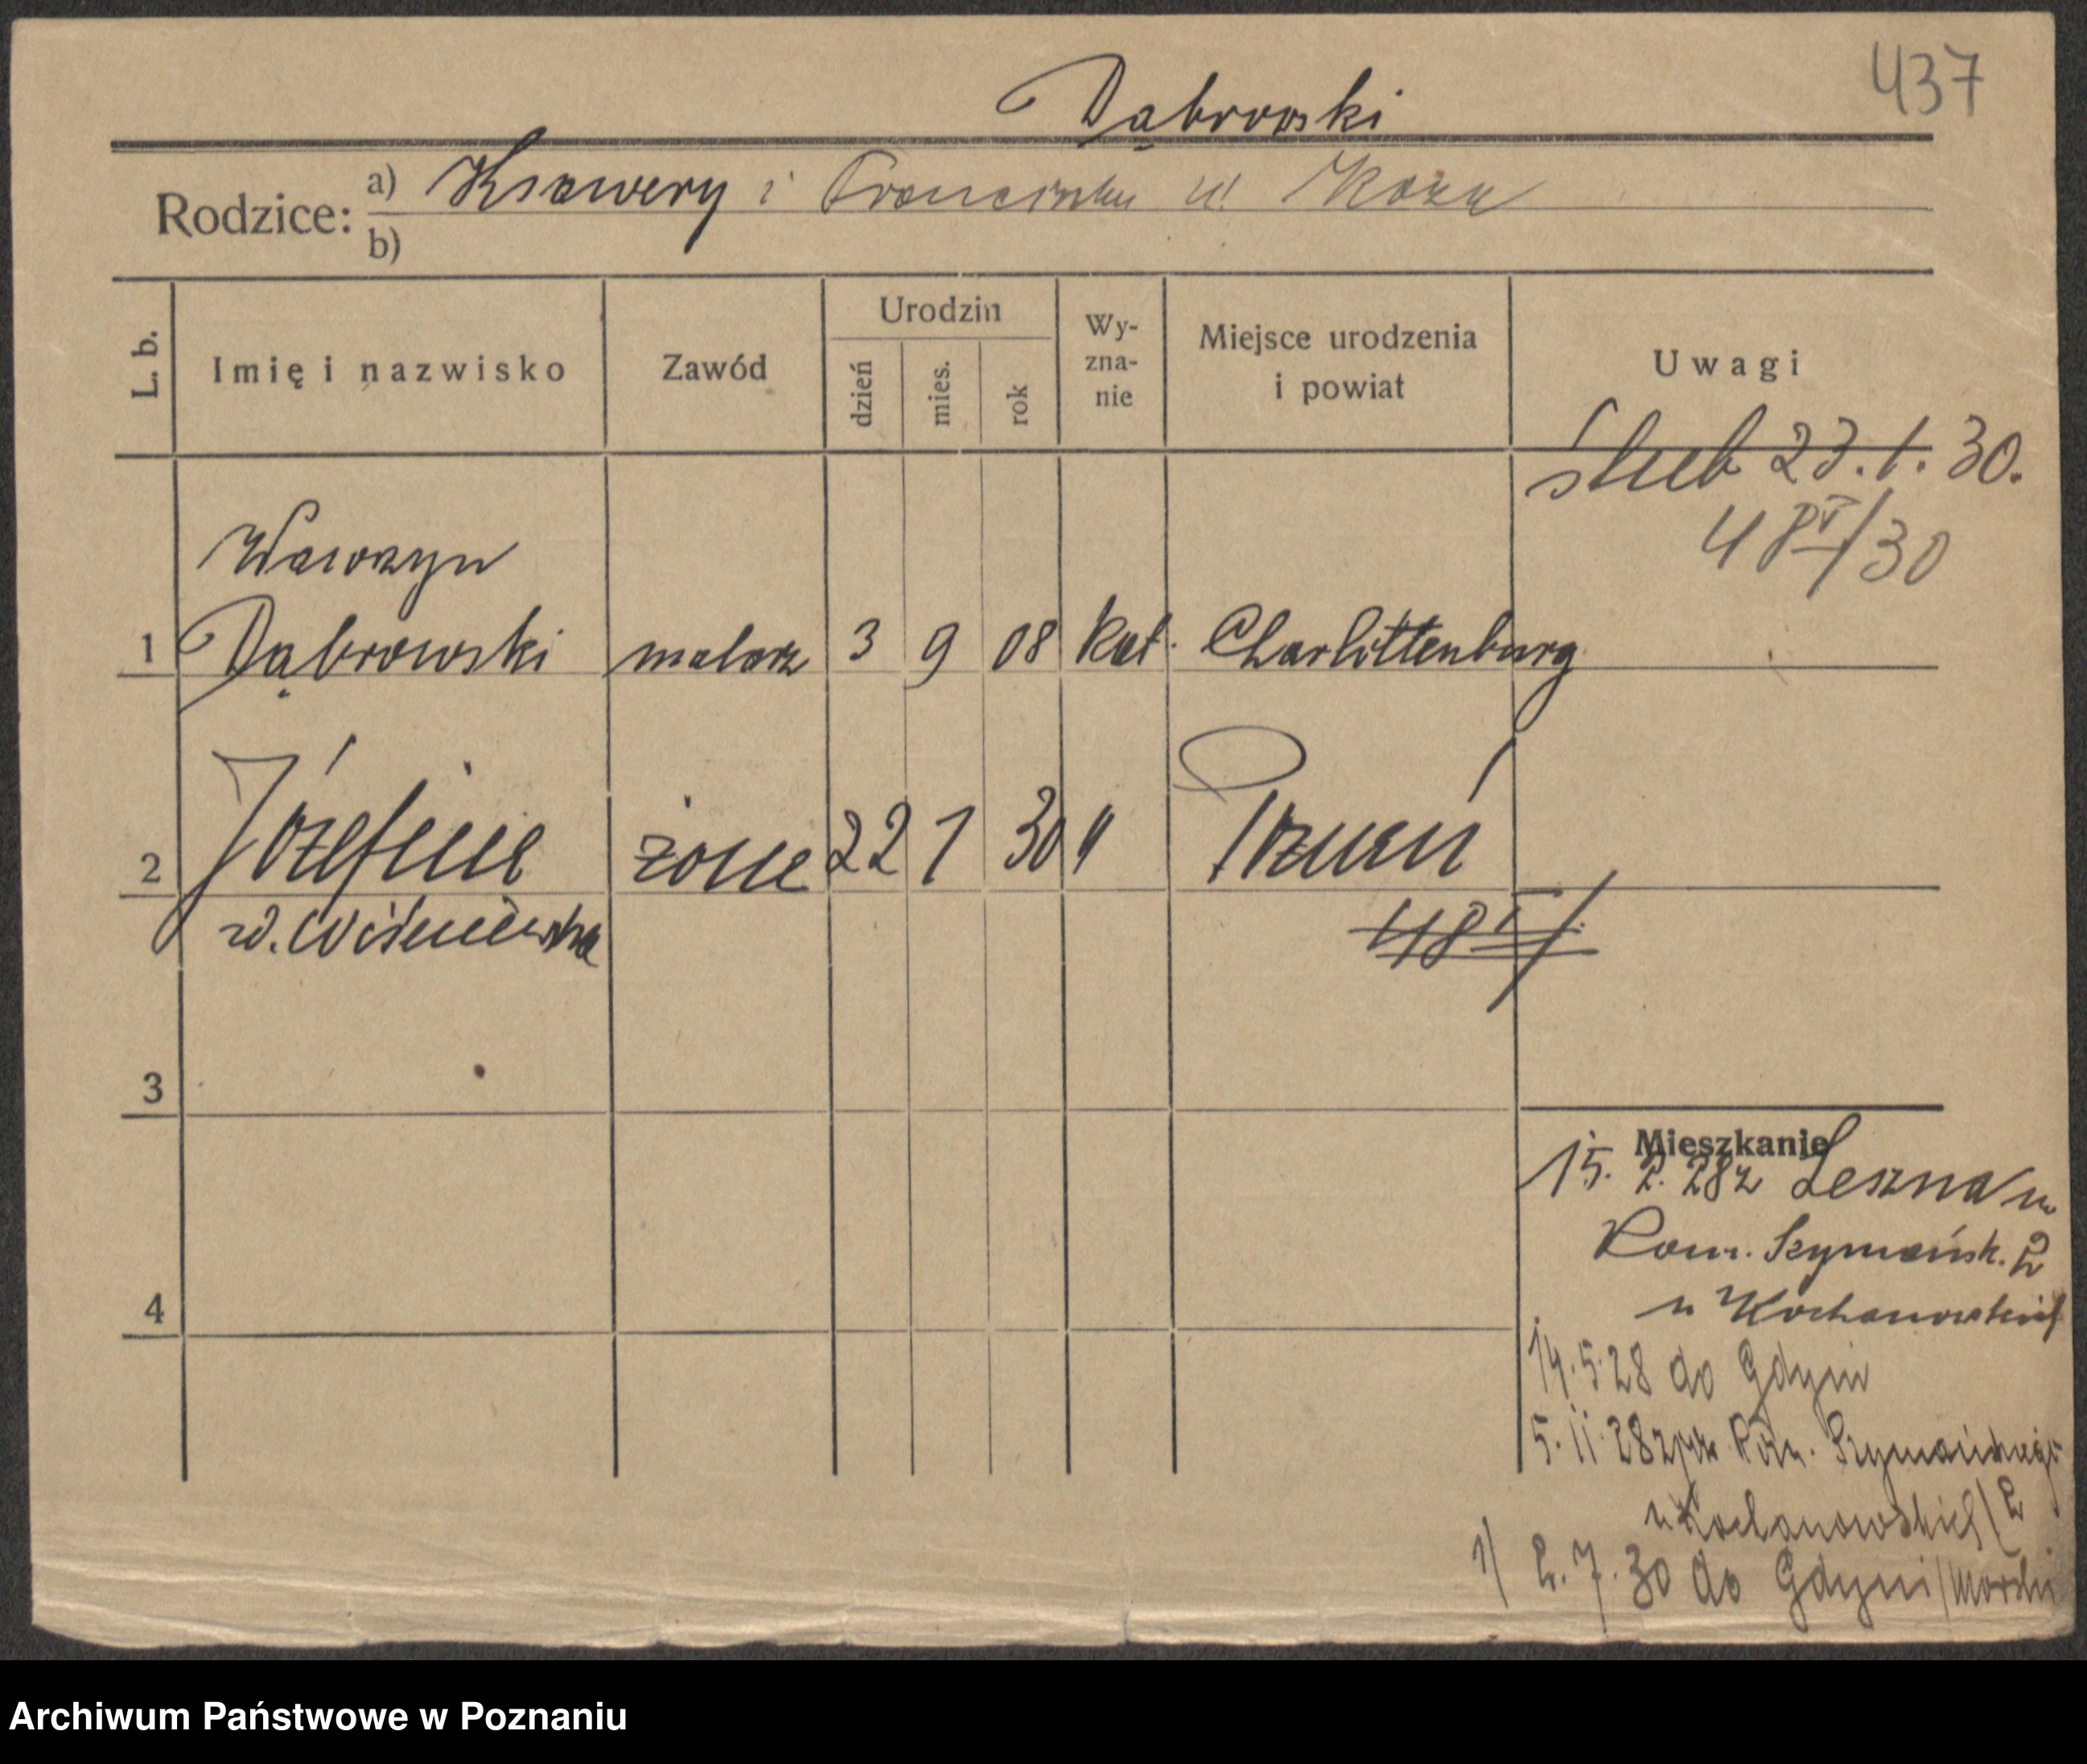 437
Dąbrowski
Rodzice: a) Ksawery i Franciszka u! Koza
b)
L. b.
Imię i nazwisko
Zawód
Urodzin
dzień
mies.
rok
Wy-
zna-
nie
Miejsce urodzenia
i powiat
Uwagi
ślub 23.1.30.
48 /30
Wawrzyn
1 Dąbrowski malarz 3 9 08 kat. Charlottenburg
2 Józefina żona 22 1 30 " Poznań
w. Wiśniewska
48
3
Mieszkanie
15. 2. 28 z Leszna
Rom. Szymańsk. 2
u Kochanowskich
4
14.5.28 do Gdyni
5.11.28 z Rom. Szymańskiego
u Kochanowskich / 2
1/ 2.7.30 do Gdyni /morski
Archiwum Państwowe w Poznaniu